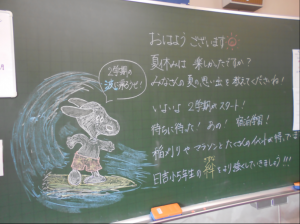 おはよう ございます
夏休みは 楽しかったですか?
みなさんの夏の思い出を 教えてくださいね!
いよいよ 2学期のスタート!
待ちに待った! あの! 宿泊学習!
稲刈りや マラソンとたくさんのイベントが待っていま
日吉小5年生の 絆をより強くしていきましょう!!!
2学期の
波に乗ろうぜ!